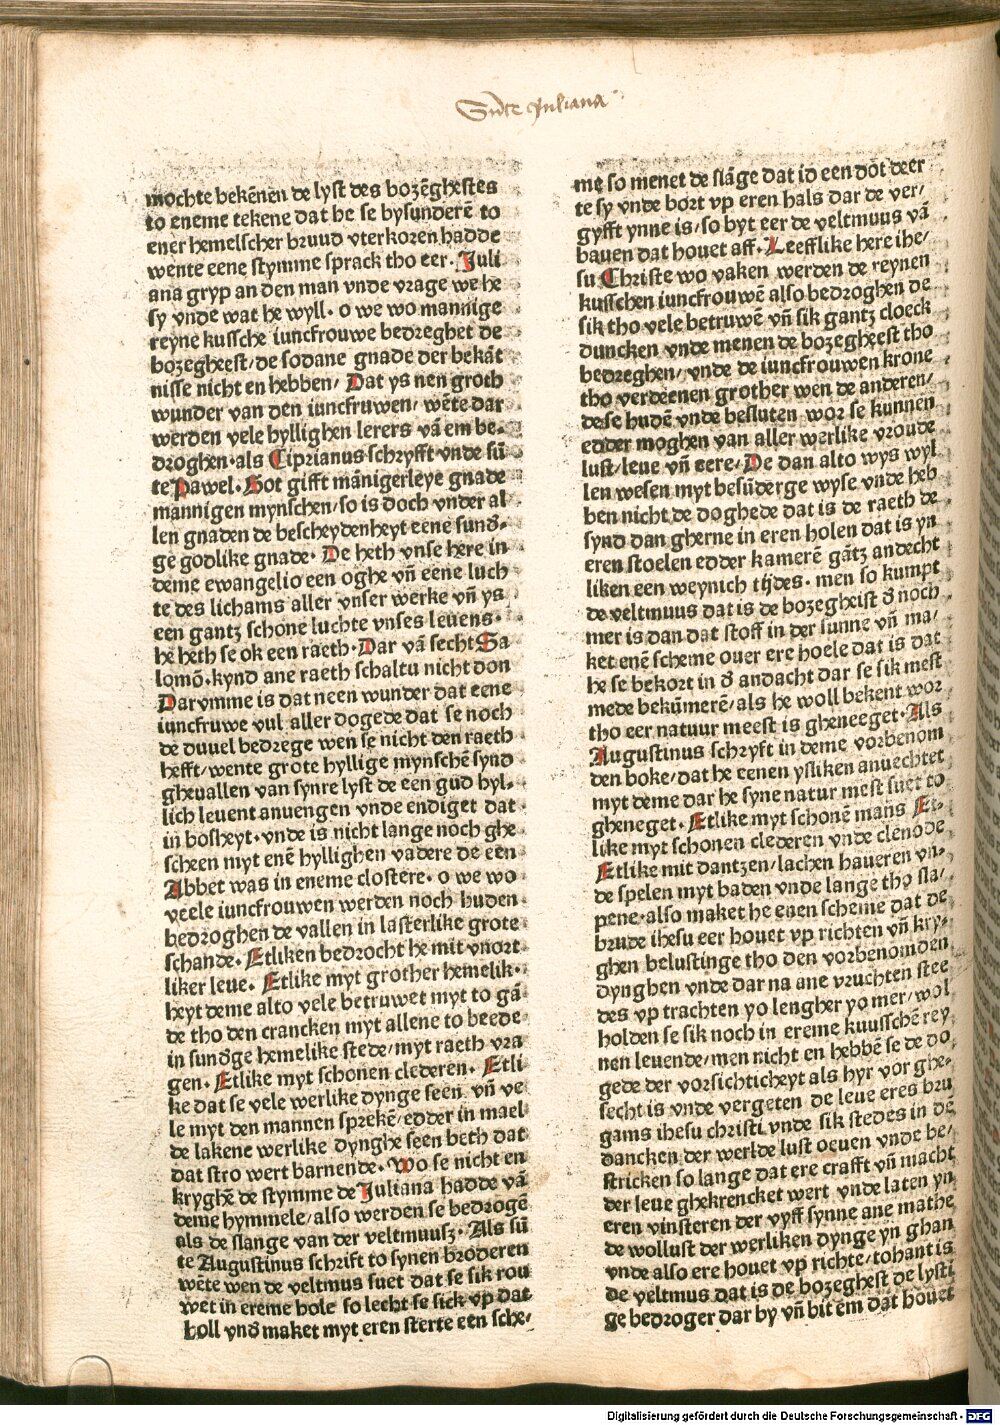 Sũte Juliana
mochte bekēnen de lyst des bozēghestes
to eneme tekene dat he se bysunderē to
ener hemelscher bruud vterkoren hadde
wente eene stymme sprack tho eer. Juli
ana gryp an den man vnde vrage we he
sy vnde wat he wyll. o we wo mannige
reyne kussche iuncfrouwe bedreghet de
bozegheest/ de sodane gnade der bekāt
nisse nicht en hebben/ Dat ys nen groth
wunder van den iuncfruwen/ wēte dar
werden vele hyllighen lerers vā em be-
droghen. als Ciprianus schryfft vnde sū
te Pawel. Got gifft mānigerleye gnade
mannigen mynschen/ so is doch vnder al
len gnaden de bescheydenheyt eene sund-
ge godlike gnade. De heth vnse here in
deme ewangelio een oghe vn̄ eene luch
te des lichams aller vnser werke vn̄ ys
een gantz schone luchte vnses leuens.
he heth se ok een raeth. Dar vā secht Sa
lomō. kynd ane raeth schaltu nicht don
Darvmme is dat neen wunder dat eene
iuncfruwe vul aller dogede dat se noch
de duuel bedrege wen se nicht den raeth
hefft/ wente grote hyllige mynschē synd
gheuallen van synre lyst de een gud hyl-
lich leuent anuengen vnde endiget dat
in bosheyt. vnde is nicht lange noch ghe
scheen myt enē hyllighen vadere de een
Abbet was in eneme clostere. o we wo
veele iuncfrouwen werden noch huden
bedroghen de vallen in lasterlike grote
schande. Etliken bedrocht he mit vnort
liker leue. Etlike myt grother hemelik-
heyt deme alto vele betruwet myt to gā
de tho den crancken myt allene to beede
in sundge hemelike stede/ myt raeth vra
gen. Etlike myt schonen clederen. Etli
ke dat se vele werlike dynge seen vn̄ ve
le myt den mannen sprekē/ edder in mael
de lakene werlike dynghe seen beth dat
dat stro wert barnende. Wo se nicht en
kryghē de stymme de Juliana hadde vā
deme hymmele/ also werden se bedrogē
als de slange van der veltmuusz. Als sū
te Augustinus schrift to synen broderen
wēte wen de veltmus suet dat se sik rou
wet in ereme hole so lecht se sick vp dat
holl vnd maket myt eren sterte een sche/
me so menet de slāge dat id een dōt deer
te sy vnde bort vp eren hals dar de ver/
gyfft ynne is/ so byt eer de veltmuus vā
bauen dat houet aff. Leefflike here ihe/
su Christe wo vaken werden de reynen
kusschen iuncfrouwē also bedroghen de
sik tho vele betruwē vn̄ sik gantz cloeck
duncken vnde menen de bozegheest tho
bedreghen/ vnde de iuncfrouwen krone
tho verdēenen grother wen de anderen/
dese hudē vnde besluten wor se kunnen
edder moghen van aller werlike vroude
lust/ leue vn̄ eere/ De dan alto wys wyl
len wesen myt besūderge wyse vnde heb
ben nicht de doghede dat is de raeth de
synd dan gherne in eren holen dat is yn
eren stoelen edder kamerē gātz andecht
liken een weynich tijdes. men so kumpt
de veltmuus dat is de bozegheist d noch
mer is dan dat stoff in der sunne vn̄ ma/
ket enē scheme ouer ere hoele dat is dat
he se bekort in d andacht dar se sik mest
mede bekūmerē/ als he woll bekent wor
tho eer natuur meest is gheneeget. Als
Augustinus schryft in deme vorbenom
den boke/ dat he eenen ysliken anuechtet
myt deme dar he syne natur mest suet to
gheneget. Etlike myt schonē mans Et-
like myt schonen clederen vnde clēnode
Etlike mit dantzen/ lachen haueren vn-
de spelen myt baden vnde lange tho sla/
pene. also maket he enen scheme dat de
brude ihesu eer houet vp richten vn̄ kry-
ghen belustinge tho den vorbenomden
dynghen vnde dar na ane vruchten stee
des vp trachten yo lengher yo mer/ wol
holden se sik noch in ereme kuusschē rey
nen leuende/ men nicht en hebbē se de do
gede der vorsichticheyt als hyr vor ghe-
secht is vnde vergeten de leue eres bru
gams ihesu christi vnde sik stedes in dē
dancken der werlde lust oeuen vnde be/
stricken so lange dat ere crafft vn̄ macht
der leue ghekrencket wert vnde laten yn
eren vinsteren der vyff synne ane mathe
de wollust der werliken dynge yn ghan
vnde also ere houet vp richte/ tohant is
de veltmus dat is de bozeghest de lysti
ge bedroger dar by vn̄ bit em dat houet
Digitalisierung gefördert durch die Deutsche Forschungsgemeinschaft - DFG